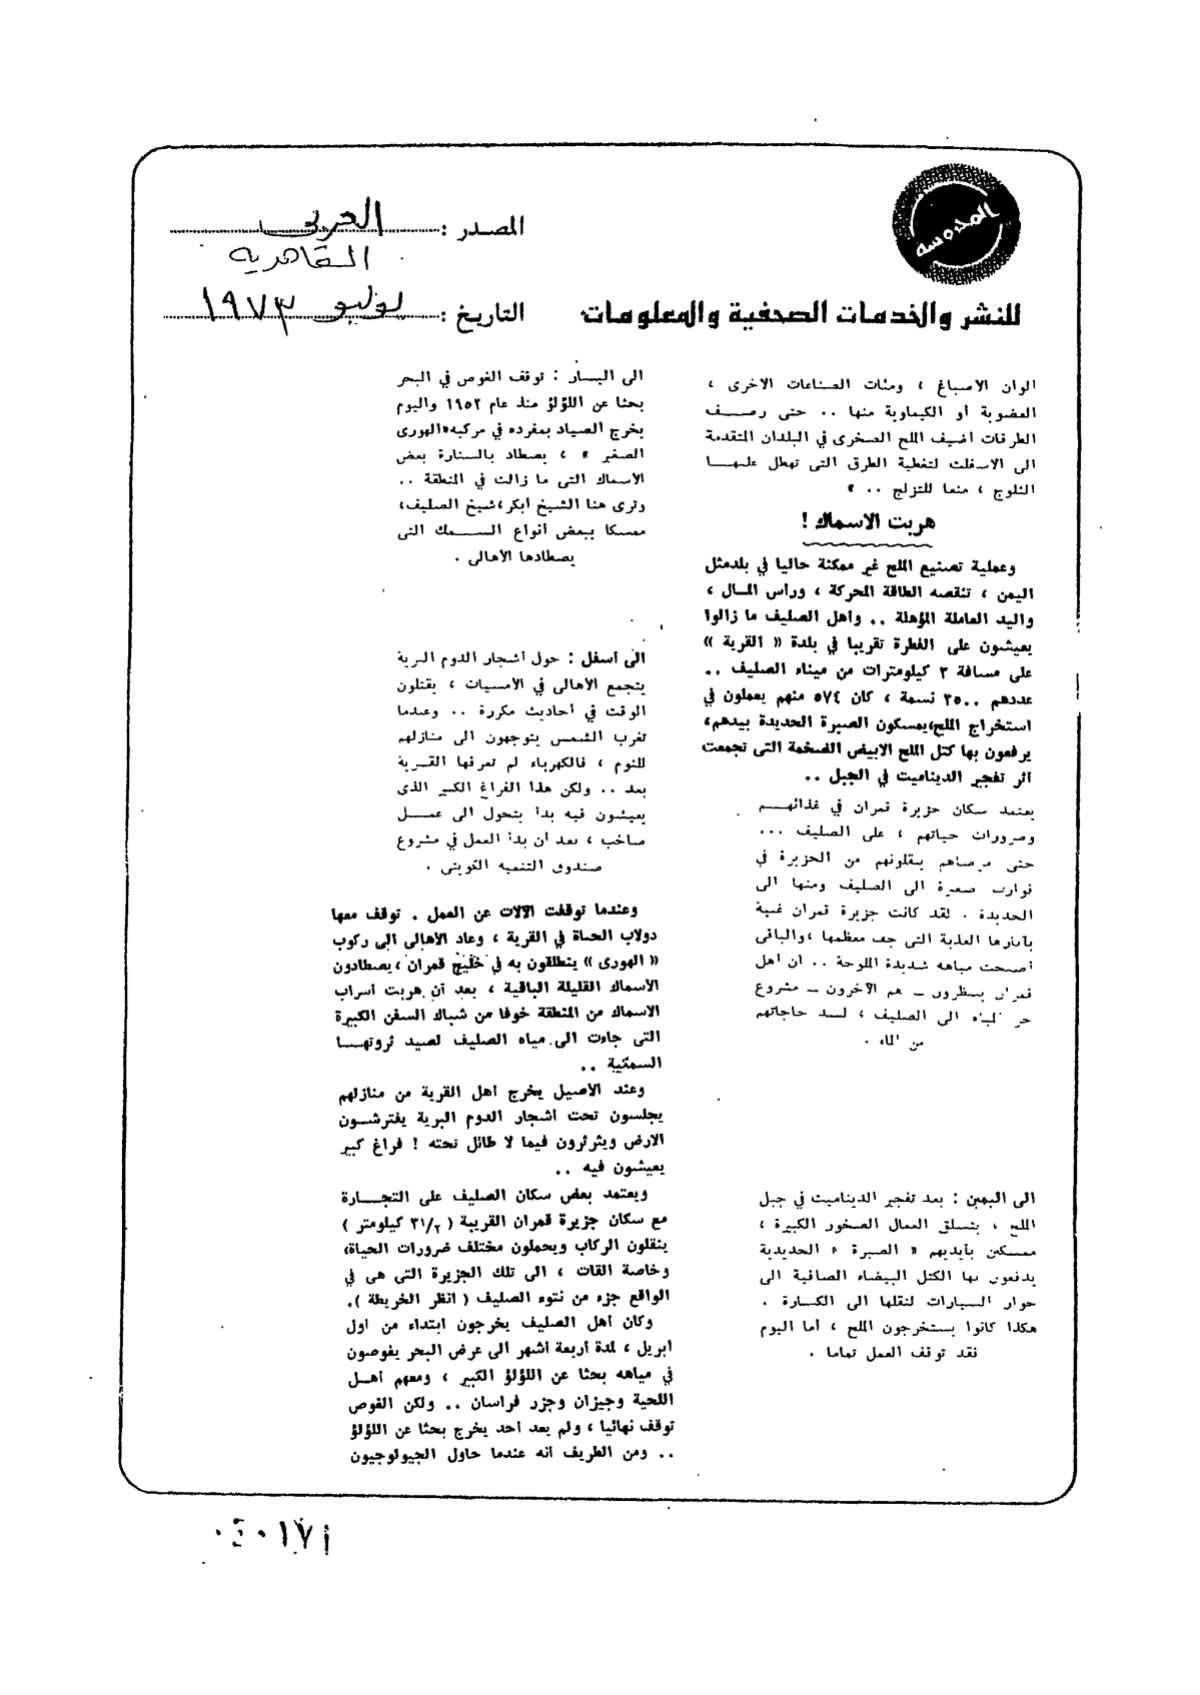 المحروسة
للنشر والخدمات الصحفية والمعلومات
المصدر : العربي
القاهرية
التاريخ : يوليو ١٩٧٣
الوان الاصباغ ، ومئات الصناعات الاخرى ،
العضوية أو الكيماوية منها .. حتى رصف
الطرقات أضيف الملح الصخرى في البلدان المتقدمة
الى الاسفلت لتغطية الطرق التى تهطل عليها
الثلوج ، منعا للتزلج .. »
هربت الاسماك !
وعملية تصنيع الملح غير ممكنة حاليا في بلد مثل
اليمن ، تنقصه الطاقة المحركة ، ورأس المال ،
واليد العاملة المؤهلة .. وأهل الصليف ما زالوا
يعيشون على الفطرة تقريبا في بلدة « القرية »
على مسافة ٢ كيلومترات من ميناء الصليف ..
عددهم ٢٥٠٠ نسمة ، كان ٥٧٤ منهم يعملون في
استخراج الملح،يمسكون الصبرة الحديدة بيدهم،
يرفعون بها كتل الملح الابيض الضخمة التى تجمعت
أثر تفجير الديناميت في الجبل ..
يعتمد سكان جزيرة قمران في غذائهم
وضرورات حياتهم ، على الصليف ...
حتى مرضاهم ينقلونهم من الجزيرة في
قوارب صغيرة الى الصليف ومنها الى
الحديدة . لقد كانت جزيرة قمران غنية
بآبارها العذبة التى جف معظمها ،والباقى
أصبحت مياهه شديدة الملوحة .. ان أهل
قمران ينتظرون ــ هم الآخرون ــ مشروع
جر المياه الى الصليف ، لسد حاجاتهم
من الماء .
الى اليمين : بعد تفجير الديناميت في جبل
الملح ، يتسلق العمال الصخور الكبيرة ،
ممسكين بأيديهم « الصبرة » الحديدية
يدفعون بها الكتل البيضاء الصافية الى
جوار السيارات لنقلها الى الكسارة .
هكذا كانوا يستخرجون الملح ، أما اليوم
فقد توقف العمل تماما .
الى اليسار : توقف الغوص في البحر
بحثا عن اللؤلؤ منذ عام ١٩٥٢ واليوم
يخرج الصياد بمفرده في مركبه«الهورى
الصغير » ، يصطاد بالسنارة بعض
الأسماك التى ما زالت في المنطقة ..
وترى هنا الشيخ أبكر،شيخ الصليف،
ممسكا ببعض أنواع السمك التى
يصطادها الأهالى .
الى أسفل : حول أشجار الدوم البرية
يتجمع الأهالى في الأمسيات ، يقتلون
الوقت في أحاديث مكررة .. وعندما
تغرب الشمس يتوجهون الى منازلهم
للنوم ، فالكهرباء لم تعرفها القرية
بعد .. ولكن هذا الفراغ الكبير الذى
يعيشون فيه بدأ يتحول الى عمل
صاخب ، بعد أن بدأ العمل في مشروع
صندوق التنميه الكويتى .
وعندما توقفت الآلات عن العمل . توقف معها
دولاب الحياة في القرية ، وعاد الأهالى الى ركوب
« الهورى » ينطلقون به في خليج قمران ،يصطادون
الأسماك القليلة الباقية ، بعد أن هربت أسراب
الاسماك من المنطقة خوفا من شباك السفن الكبيرة
التى جاءت الى مياه الصليف لصيد ثروتها
السمكية ..
وعند الأصيل يخرج أهل القرية من منازلهم
يجلسون تحت أشجار الدوم البرية يفترشون
الارض ويثرثرون فيما لا طائل تحته ! فراغ كبير
يعيشون فيه ..
ويعتمد بعض سكان الصليف على التجارة
مع سكان جزيرة قمران القريبة ( ٢١/٢ كيلومتر )
ينقلون الركاب ويحملون مختلف ضرورات الحياة،
وخاصة القات ، الى تلك الجزيرة التى هى في
الواقع جزء من نتوء الصليف ( انظر الخريطة ).
وكان أهل الصليف يخرجون ابتداء من أول
أبريل ، لمدة أربعة أشهر الى عرض البحر يغوصون
في مياهه بحثا عن اللؤلؤ الكبير ، ومعهم أهل
اللحية وجيزان وجزر فراسان .. ولكن الغوص
توقف نهائيا ، ولم يعد أحد يخرج بحثا عن اللؤلؤ
.. ومن الطريف أنه عندما حاول الجيولوجيون